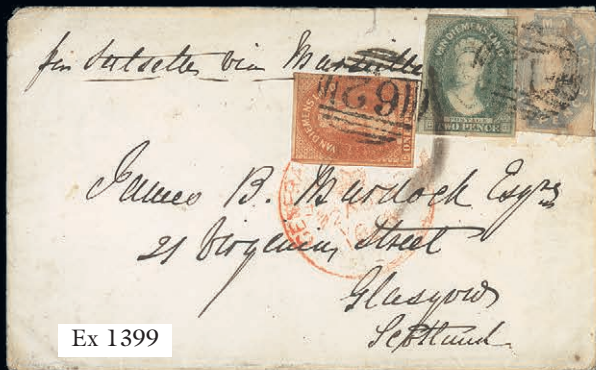 per Sulsette via Marseilles
VAN DIEMENS LAND
VAN DIEMENS LAND
POSTAGE
TWO PENCE
62
GENERA
James B. Murdock Esqre
21 Virginia Street
Glasgow
Scotland
Ex 1399